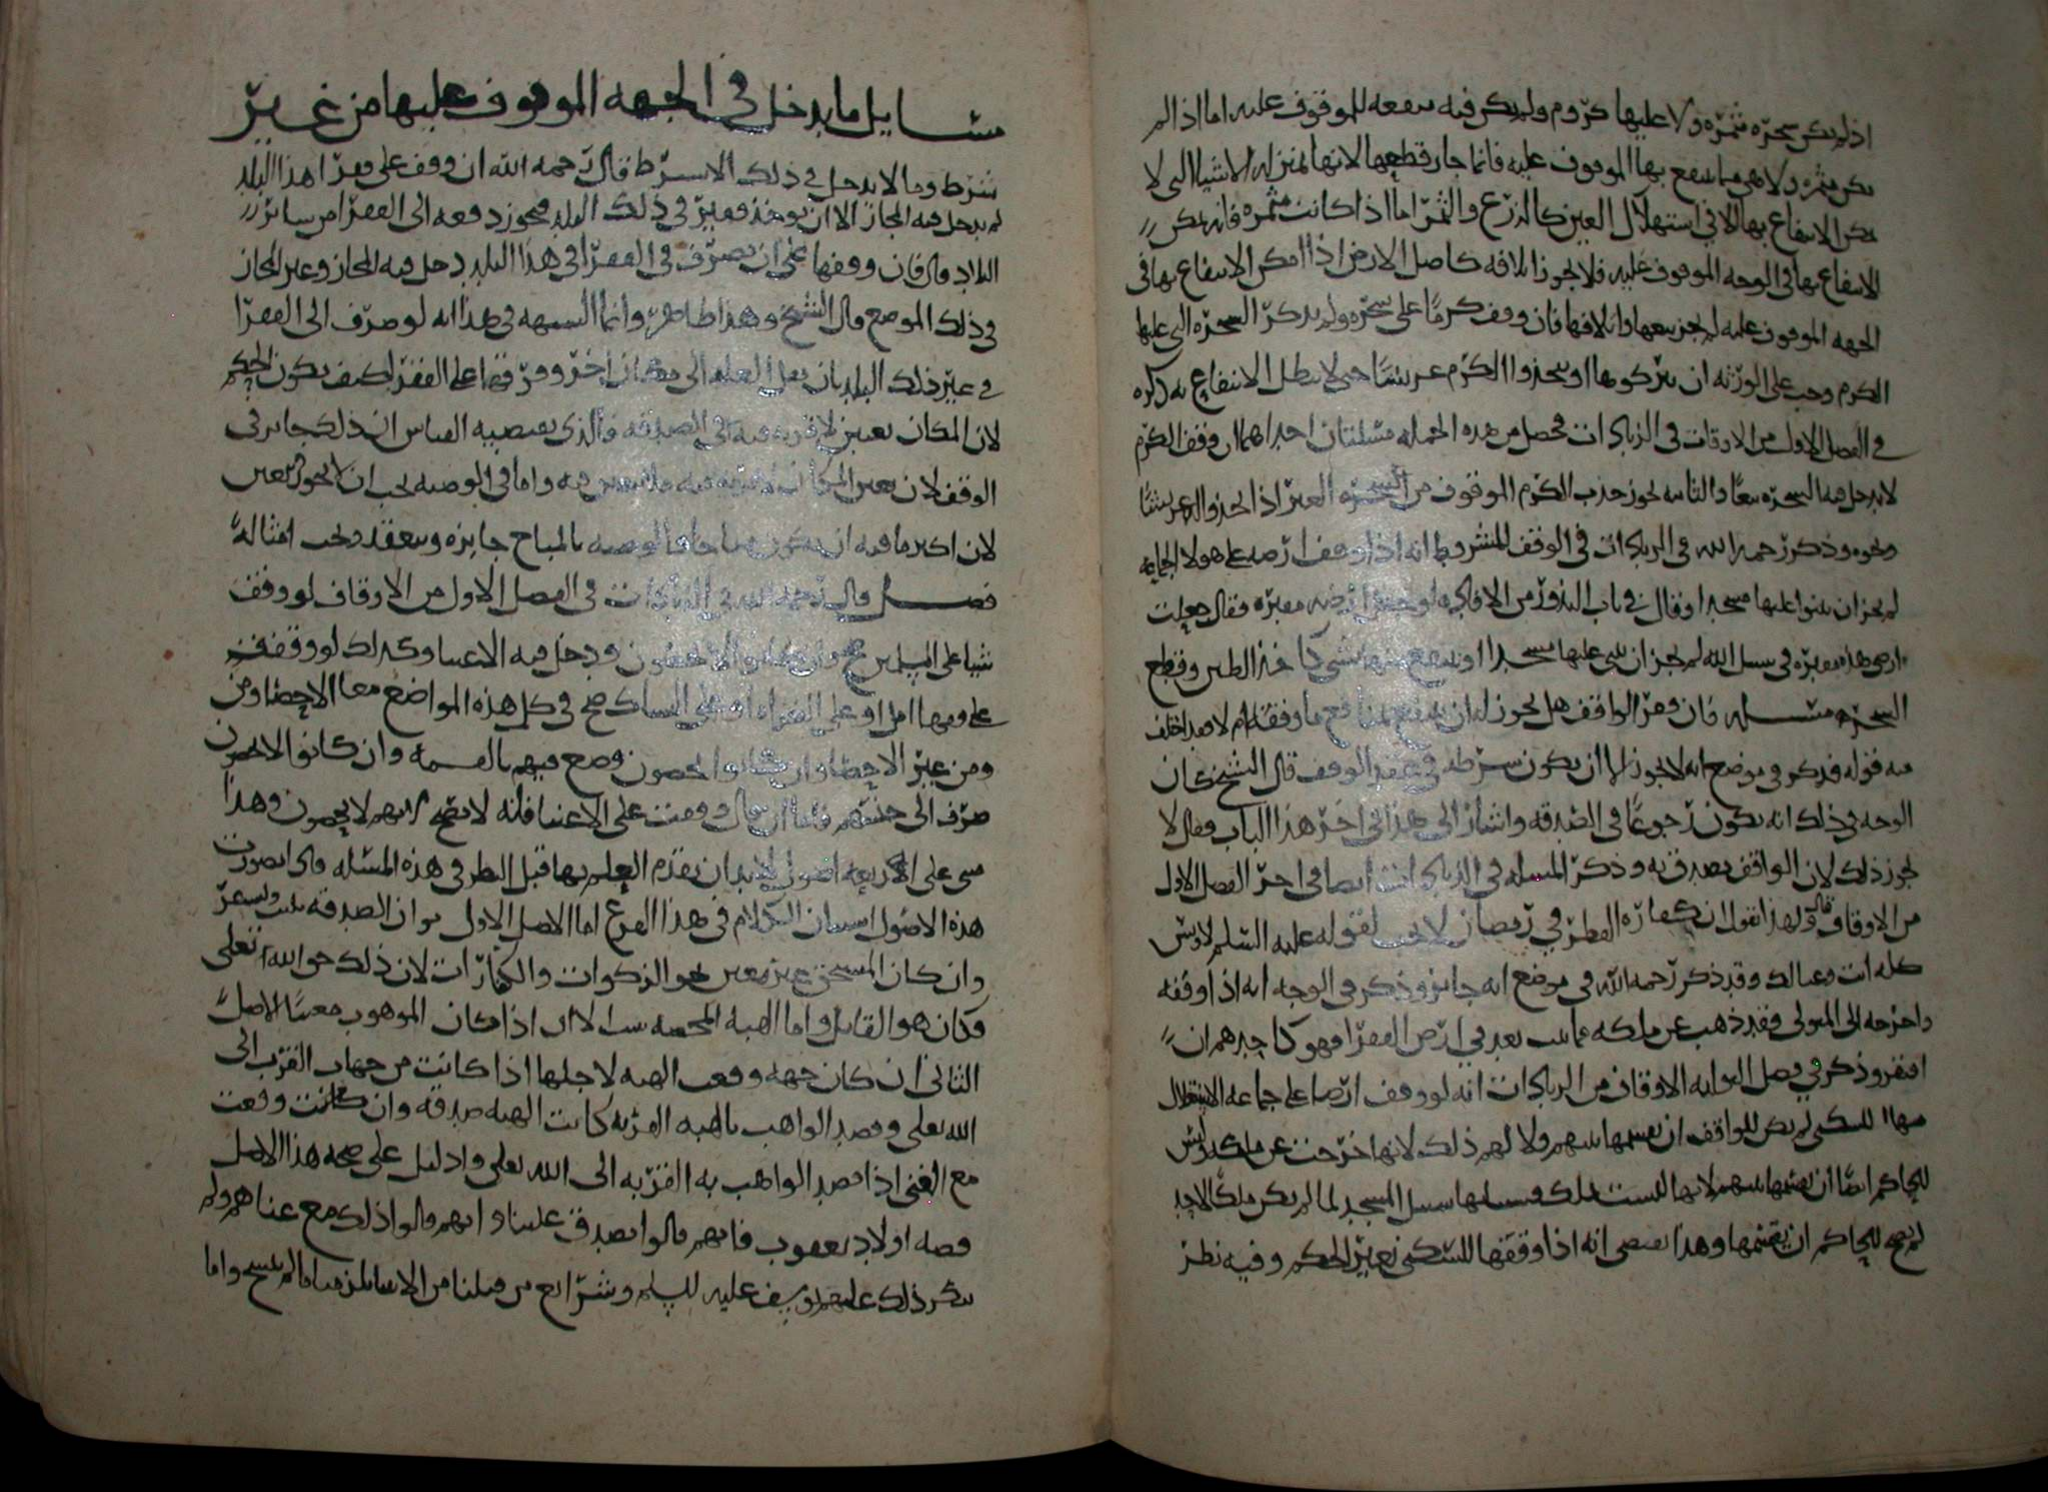 اذا لم يكن شجرة مثمرة ولا عليها كروم ولم يكن فيه منفعه للموقوف عليه اما اذا لم
يكن مثمره ولا هي مما ينتفع بها الموقوف عليه فانما جاز قطعها لانها بمنزله الاشيا التي لا
يمكن الانتفاع بها الا في استهلاك العين كالزرع والثمر اما اذا كانت مثمره فانه يمكن
الانتفاع بها في الوجه الموقوف عليه فلا يجوز اتلافه كاصل الارض اذا امكن الانتفاع بها في
الجهه الموقوف عليه لم يجز بيعها واتلافها فان وقف كرما على شجره ولم يذكر الشجره التي عليها
الكرم وجب على الورثه ان يتركوها او يتخذوا الكرم عريشا حتى لا يبطل الانتفاع به ذكره
في الفصل الاول من الاوقاف في الزيادات فحصل من هذه الجمله مسئلتان احداهما ان وقف الكرم
لا يدخل فيه الشجره تبعا والثانيه يجوز جذب الكرم الموقوف من الشجره الغير اذا اتخذوا له عريشا
ونحوه وذكر رحمه الله في الزيادات في الوقف المشروط انه اذا وقف ارضه على هولا الجماعه
لم يجز ان يبنوا عليها مسجدا وقال في باب النذور من الافاده لو جعل ارضه مقبره فقال جعلت
ارضي هذه مقبره في سبيل الله لم يجز ان يبنى عليها مسجدا او ينتفع منها بشي كاخذ الطين وقطع
الشجره مسئله فان فقر الواقف هل يجوز له ان ينتفع بمنافع ما وقفه ام لا وقد اختلف
فيه قوله فذكر في موضع انه لا يجوز الا ان يكون شرطه في عقد الوقف قال الشيخ كان
الوجه في ذلك انه يكون رجوعا في الصدقه واشار الى هذا في اخر هذا الباب وقال لا
يجوز ذلك لان الواقف تصدق به وذكر المسئله في الزيادات ايضا في اخر الفصل الاول
من الاوقاف قال ولهذا نقول ان كفارة الفطر في رمضان لا تجب لقوله عليه السلم لاوس
كله انت وعيالك وقد ذكر رحمه الله في موضع انه جائز وذكر في الوجه انه اذا وقفه
واخرجه الى المتولي فقد ذهب عن ملكه فاثبت بعد في ارض الفقرا فهو كاحدهم ان
افتقر وذكر في فصل النوابه الاوقاف من الزيادات انه لو وقف ارضا على جماعه الاستغلال
منها للسكنى لم يكن للواقف ان يقسمها بينهم ولا لهم ذلك لانها خرجت عن ملكه وليس
للحاكم ايضا ان يقسمها بينهم لانها ليست بملك وسبيلها سبيل المسجد لما لم يكن ملكا لاحد
لم يصح للحاكم ان يقسمها وهذا يقتضي انه اذا وقفها للسكنى تعين الحكم وفيه نظر
مسايل ما يدخل في الجهه الموقوف عليها من غير
شرط وما لا يدخل في ذلك الا بشرط قال رحمه الله ان وقف على فقرا هذا البلد
لم يدخل فيه المجاز الا ان يوخذ فقير في ذلك البلد فيجوز دفعه الى الفقرا من ساير
البلاد قال فان وقفها على ان يصرف في الفقرا في هذا البلد دخل فيه المجاز وغير المجاز
في ذلك الموضع قال الشيخ وهذا ظاهر وانما الشبهه في هذا انه لو صرف الى الفقرا
في غير ذلك البلد بان نقل الغله الى مكان اخر وفرق فيما على الفقر كيف يكون الحكم
لان المكان تعين لا قربه فيه في الصدقه والذي يقتضيه القياس ان ذلك جائز في
الوقف لان تعين المكان لا قربه فيه فلا يتعين فيه واما في الوصيه يجب ان لا يجوز لتعين
لان اكثر ما فيه ان يكون مباحا فالوصيه بالمباح جايزه وينعقد ويجب امتثاله
فصل قال رحمه الله في الزيادات في الفصل الاول من الاوقاف لو وقف
شيا على المسلمين صح وان كانوا لا يحصون ودخل فيه الاغنيا وكذلك لو وقف
على فقها امل او على القراء او على النساك صح في كل هذه المواضع معا الاحصا ومن
ومن غير الاحصا وان كانوا يحصون وضع فيهم بالقسمه وان كانوا لا يحصون
صرف الى جنسهم فاما ان قال وقفت على الاغنيا فانه لا يصح لانهم لا يحصون وهذا
مبني على اربعه اصول لا بد ان يقدم العلم بها قبل النظر في هذه المسئله فاذا تصورت
هذه الاصول استبان الكلام في هذا الفرع اما الاصل الاول هو ان الصدقه تثبت وتستقر
وان كان المستحق غير معين نحو الزكوات والكفارات لان ذلك حق الله تعلى
وكان هو القابل واما الهبه المحضه لا اذا كان الموهوب معينا الاصل
الثاني ان كان جهه وقعت الهبه لاجلها اذا كانت من جهات القرب الى
الله تعلى وقصد الواهب بالهبه القربه كانت الهبه صدقه وان كانت وقعت
مع الغنى اذا قصد الواهب به القربه الى الله تعلى والدليل على صحه هذا الاصل
قصه اولاد يعقوب فانهم قالوا تصدق علينا وانهم قالوا ذلك مع غناهم ولم
ينكر ذلك عليهم يوسف عليه السلم وشرائع من قبلنا من الانبيا يلزمنا ما لم ينسخ واما